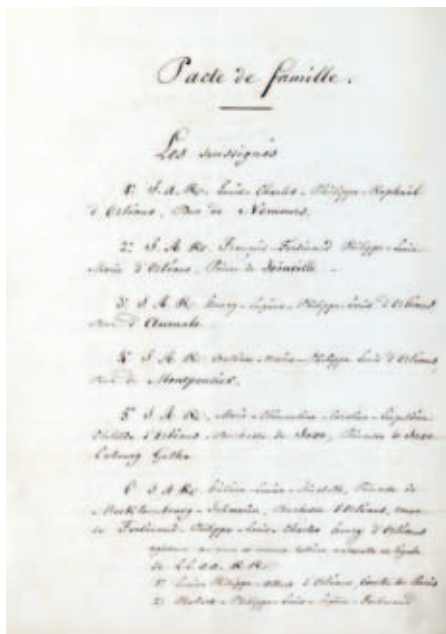 Pacte de famille.
Les soussignés
1º S. A. R. Louis-Charles-Philippe-Raphaël
d'Orléans, Duc de Nemours.
2º S. A. R. François-Ferdinand-Philippe-Louis-
Marie d'Orléans, Prince de Joinville.
3º S. A. R. Henry-Eugène-Philippe-Louis d'Orléans
Duc d'Aumale.
4º S. A. R. Antoine-Marie-Philippe-Louis d'Orléans
Duc de Montpensier.
5º S. A. R. Marie-Clémentine-Caroline-Léopoldine
Clotilde d'Orléans Duchesse de Saxe, Princesse de Saxe
Cobourg Gotha
6º S. A. R. Hélène-Louise-Elisabeth, Princesse de
Mecklembourg-Schwerin, Duchesse d'Orléans, veuve
de Ferdinand-Philippe-Louis-Charles Henry d'Orléans
de LL. AA. RR.
1º Louis-Philippe-Albert d'Orléans, Comte de Paris
2º Robert-Philippe-Louis-Eugène-Ferdinand